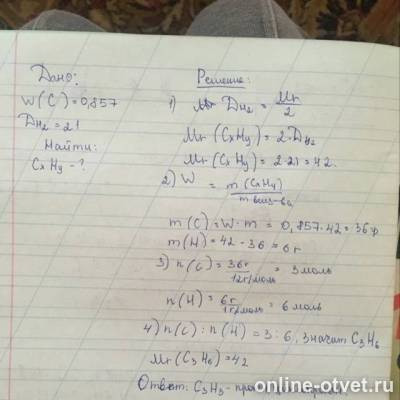 Дано:
W(C)=0,857
DH2=21
Найти:
CxHy-?
Решение:
1) DH2 = Mr/2
Mr(CxHy)=2·DH2
Mr(CxHy)=2·21=42.
2) W = m(CxHy)/m вещ-ва
m(C)=W·m=0,857·42=36г
m(H)=42-36=6г
3) n(C)=36г/12г/моль=3моль
n(H)=6г/1г/моль=6моль
4) n(C):n(H)=3:6, значит C3H6
Mr(C3H6)=42
Ответ: C3H3-
online-otvet.ru